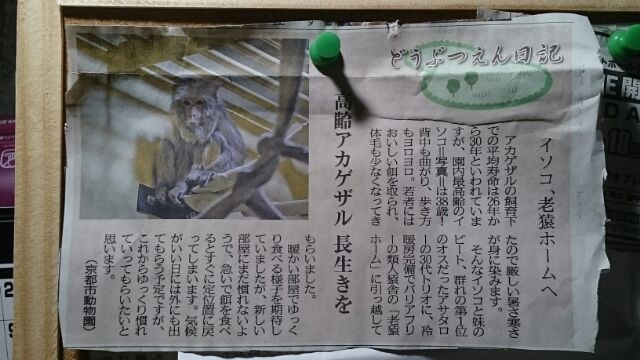 どうぶつえん日記
イソコ、老猿ホームへ
高齢アカゲザル 長生きを
アカゲザルの飼育下
での平均寿命は26年か
ら30年といわれていま
すが、園内最高齢のイ
ソコ＝写真＝は38歳！
背中も曲がり、歩き方
もヨロヨロ。若者には
おいしい餌を取られ、
体毛も少なくなってき
たので厳しい暑さ寒さ
が身に染みます。
そんなイソコと妹の
ピート、群れの第1位
のオスだったアサタロ
ーの30代トリオに、冷
暖房完備でバリアフリ
ーの類人猿舎の「老猿
ホーム」に引っ越して
もらいました。
暖かい部屋でゆっく
り食べる様子を期待し
ていましたが、新しい
部屋にまだ慣れないよ
うで、急いで餌を食べ
るとすぐに定位置に戻
ってしまいます。気候
がいい日には外にも出
てもらう予定ですが、
これからゆっくり慣れ
ていってもらいたいと
思います。
（京都市動物園）